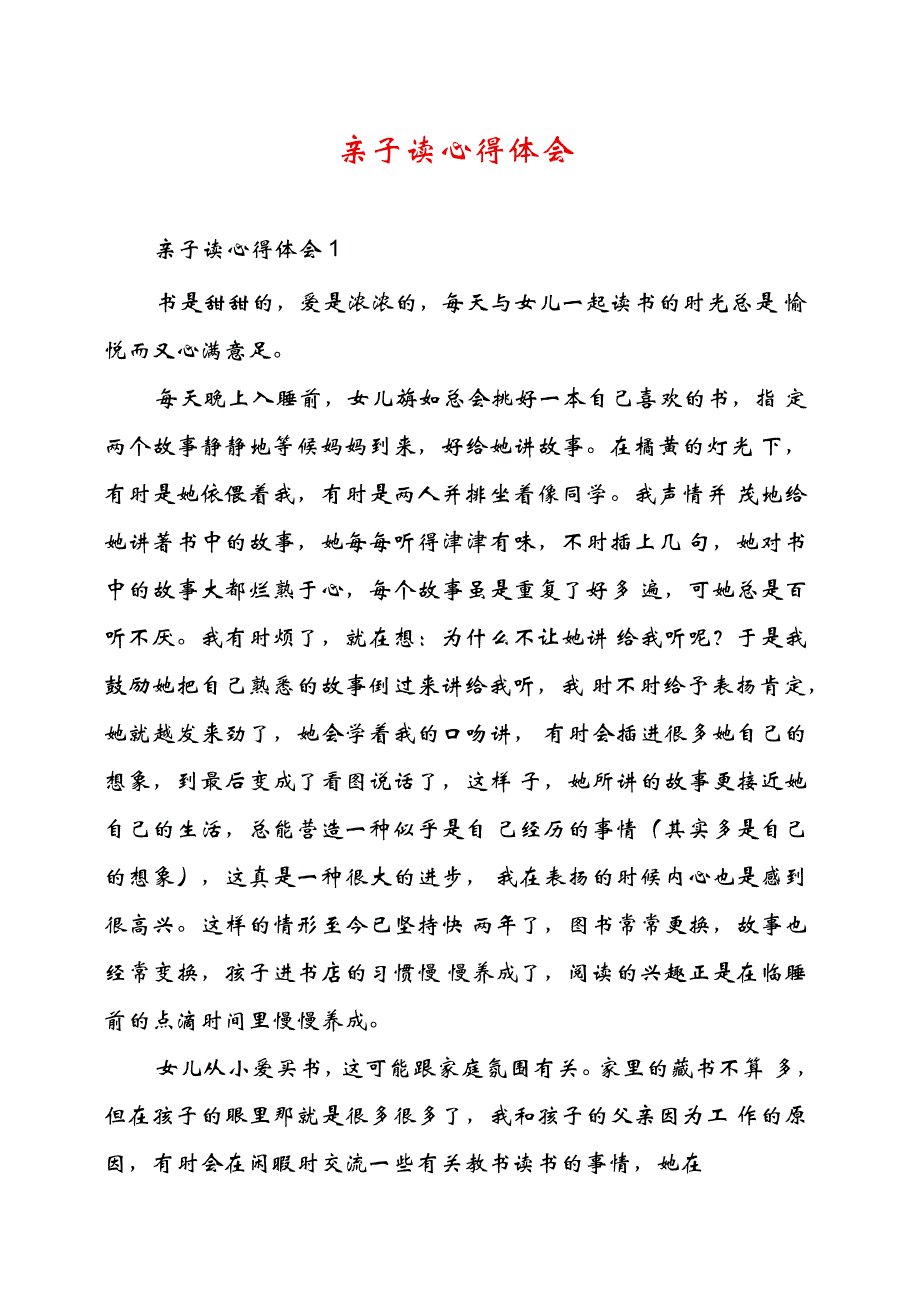 亲子读心得体会
亲子读心得体会1
书是甜甜的，爱是浓浓的，每天与女儿一起读书的时光总是 愉
悦而又心满意足。
每天晚上入睡前，女儿旃如总会挑好一本自己喜欢的书，指 定
两个故事静静地等候妈妈到来，好给她讲故事。在橘黄的灯光 下，
有时是她依偎着我，有时是两人并排坐着像同学。我声情并 茂地给
她讲著书中的故事，她每每听得津津有味，不时插上几 句，她对书
中的故事大都烂熟于心，每个故事虽是重复了好多 遍，可她总是百
听不厌。我有时烦了，就在想：为什么不让她讲 给我听呢？于是我
鼓励她把自己熟悉的故事倒过来讲给我听，我 时不时给予表扬肯定，
她就越发来劲了，她会学着我的口吻讲， 有时会插进很多她自己的
想象，到最后变成了看图说话了，这样 子，她所讲的故事更接近她
自己的生活，总能营造一种似乎是自 己经历的事情（其实多是自己
的想象），这真是一种很大的进步， 我在表扬的时候内心也是感到
很高兴。这样的情形至今已坚持快 两年了，图书常常更换，故事也
经常变换，孩子进书店的习惯慢 慢养成了，阅读的兴趣正是在临睡
前的点滴时间里慢慢养成。
女儿从小爱买书，这可能跟家庭氛围有关。家里的藏书不算 多，
但在孩子的眼里那就是很多很多了，我和孩子的父亲因为工 作的原
因，有时会在闲暇时交流一些有关教书读书的事情，她在